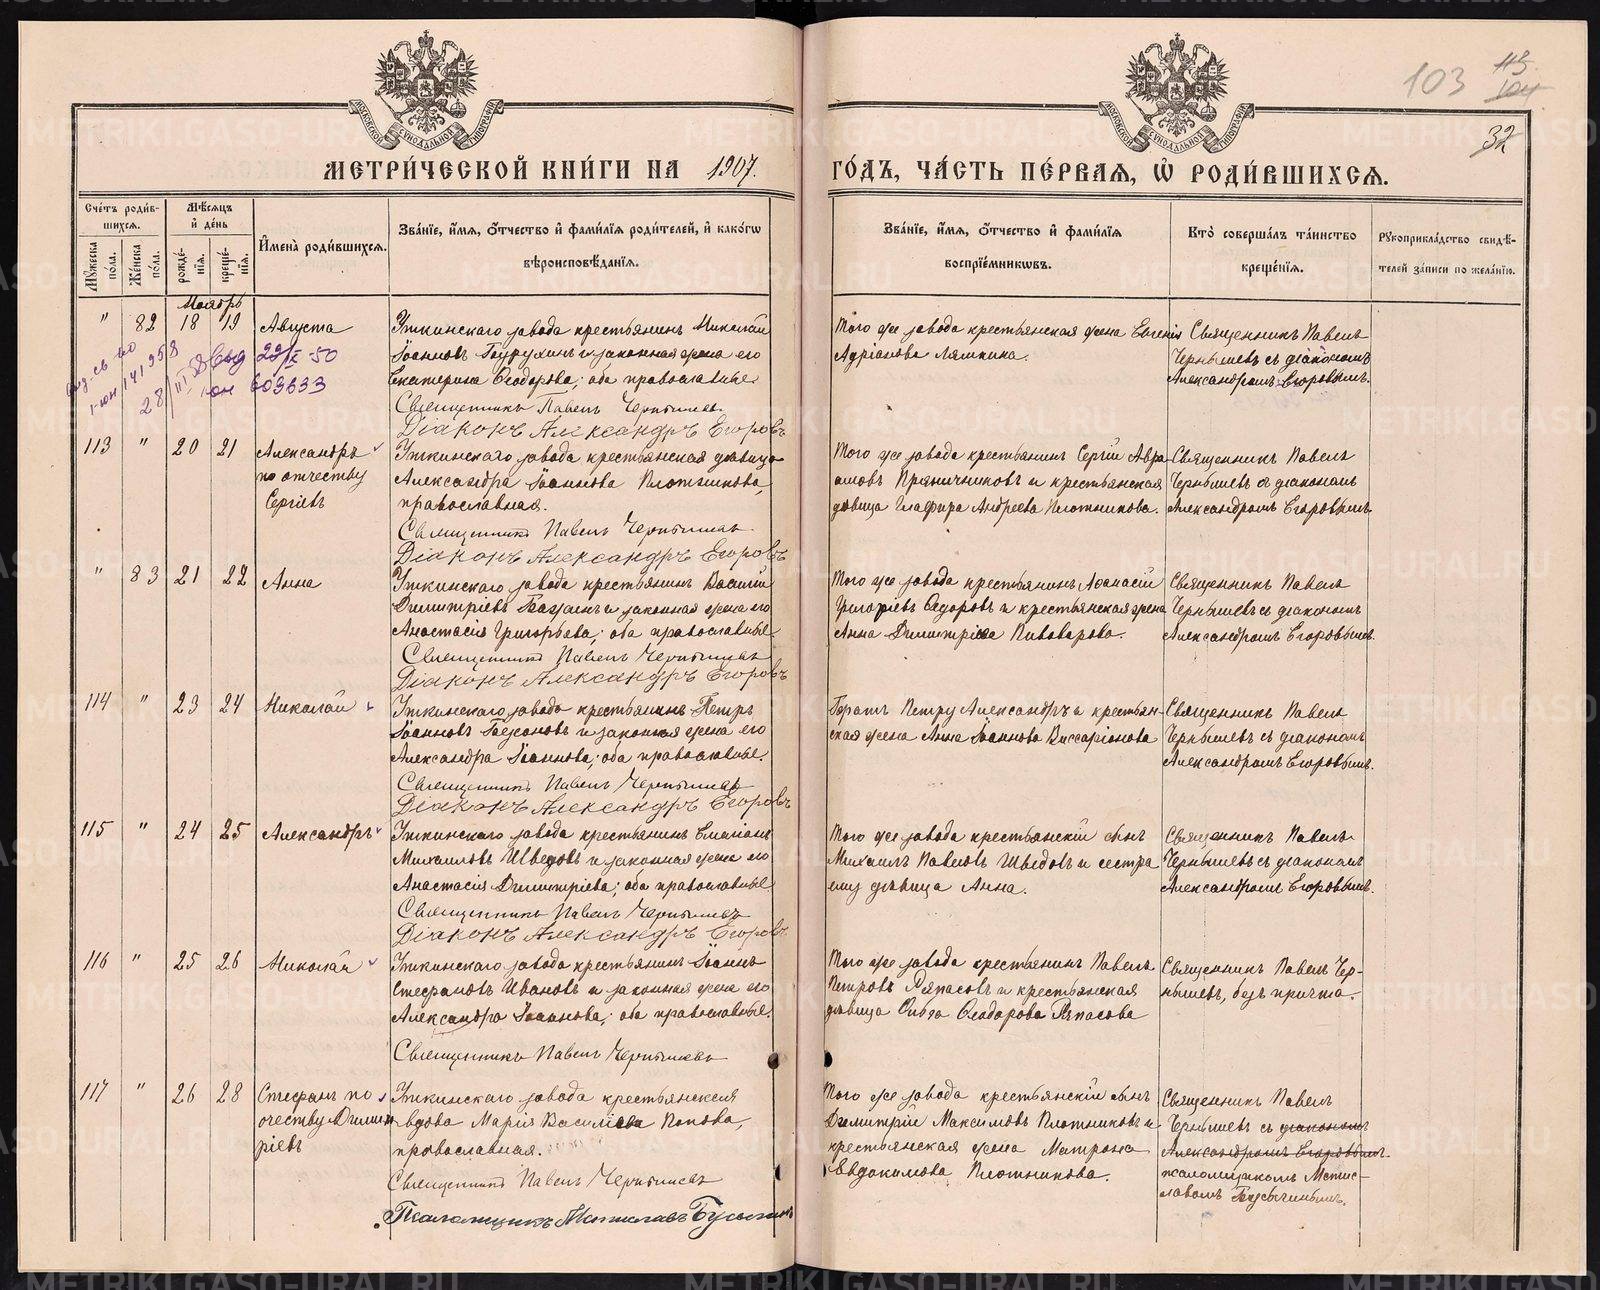 103
115
104
32
МЕТРИ́ЧЕСКОЙ КНИ́ГИ НА 1907.
ГО́ДЪ, ЧА́СТЬ ПЕ́РВАЯ, Ѡ҆ РОДИ́ВШИХСЯ.
Сче́тъ роди́в-
шихся.
Мꙋ́жеска по́ла.
Же́нска по́ла.
Мѣ́сяцъ и де́нь
рожде́-нія.
креще́-нія.
Имена̀ роди́вшихся.
Зва́ніе, и́мя, о́тчество и фами́лія роди́телей, и како́гѡ
вѣроисповѣ́данія.
Зва́ніе, и́мя, о́тчество и фами́лія
воспріе́мникѡвъ.
Кто̀ соверша́лъ та́инство
креще́нія.
Рꙋкоприкла́дство свидѣ́-
телей за́писи по жела́нію.
Ноябрь
" 82 18 19 Августа
Уткинскаго завода крестьянинъ Николай
Іоанновъ и законная жена его
Екатерина Ѳеодорова; оба православные.
Священникъ Павелъ Чернышевъ
Діаконъ Александръ Егоровъ
Того же завода крестьянская жена Евгенія
Адріанова Лямкина.
Священникъ Павелъ
Чернышевъ съ діакономъ
Александромъ Егоровымъ.
50
603633
113 " 20 21 Александръ
по отчеству
Сергіевъ
Уткинскаго завода крестьянская дѣвица
Александра Іоаннова Плотникова,
православная.
Священникъ Павелъ Чернышевъ
Діаконъ Александръ Егоровъ
Того же завода крестьянинъ Сергій Авра
амовъ Пряничниковъ и крестьянская
дѣвица Глафира Андреева Плотникова.
Священникъ Павелъ
Чернышевъ съ діакономъ
Александромъ Егоровымъ.
" 83 21 22 Анна
Уткинскаго завода крестьянинъ Василій
Димитріевъ и законная жена его
Анастасія Григорьева; оба православные.
Священникъ Павелъ Чернышевъ
Діаконъ Александръ Егоровъ
Того же завода крестьянинъ Аѳанасій
Григоріевъ Ѳедоровъ и крестьянская жена
Анна Димитріева Пивоварова.
Священникъ Павелъ
Чернышевъ съ діакономъ
Александромъ Егоровымъ.
114 " 23 24 Николай
Уткинскаго завода крестьянинъ Петръ
Іоанновъ и законная жена его
Александра Іоаннова; оба православные.
Священникъ Павелъ Чернышевъ
Діаконъ Александръ Егоровъ
Братъ Петру Александръ и крестьян-
ская жена Анна Іоаннова Виссаріонова
Священникъ Павелъ
Чернышевъ съ діакономъ
Александромъ Егоровымъ.
115 " 24 25 Александръ
Уткинскаго завода крестьянинъ
Михаиловъ Шведовъ и законная жена его
Анастасія Димитріева; оба православные
Священникъ Павелъ Чернышевъ
Діаконъ Александръ Егоровъ
Того же завода крестьянскій сынъ
Михаилъ Павловъ Шведовъ и сестра
ему дѣвица Анна.
Священникъ Павелъ
Чернышевъ съ діакономъ
Александромъ Егоровымъ.
116 " 25 26 Николай
Уткинскаго завода крестьянинъ Іоаннъ
Стефановъ Ивановъ и законная жена его
Александра Іоаннова; оба православные.
Священникъ Павелъ Чернышевъ
Того же завода крестьянинъ Павелъ
Петровъ Ряпасовъ и крестьянская
дѣвица Ольга Ѳеодорова Ряпасова
Священникъ Павелъ Чер-
нышевъ, безъ причта.
117 " 26 28 Стефанъ по
отчеству Димит-
ріевъ
Уткинскаго завода крестьянская
вдова Марія Василіева Попова,
православная.
Священникъ Павелъ Чернышевъ
Псаломщикъ Мстиславъ
Того же завода крестьянскій сынъ
Димитрій Максимовъ Плотниковъ и
крестьянская жена Матрона
Евдокимова Плотникова.
Священникъ Павелъ
Чернышевъ съ діакономъ
Александромъ Егоровымъ.
псаломщикомъ Мстис-
лавомъ
METRIKI.GASO-URAL.RU